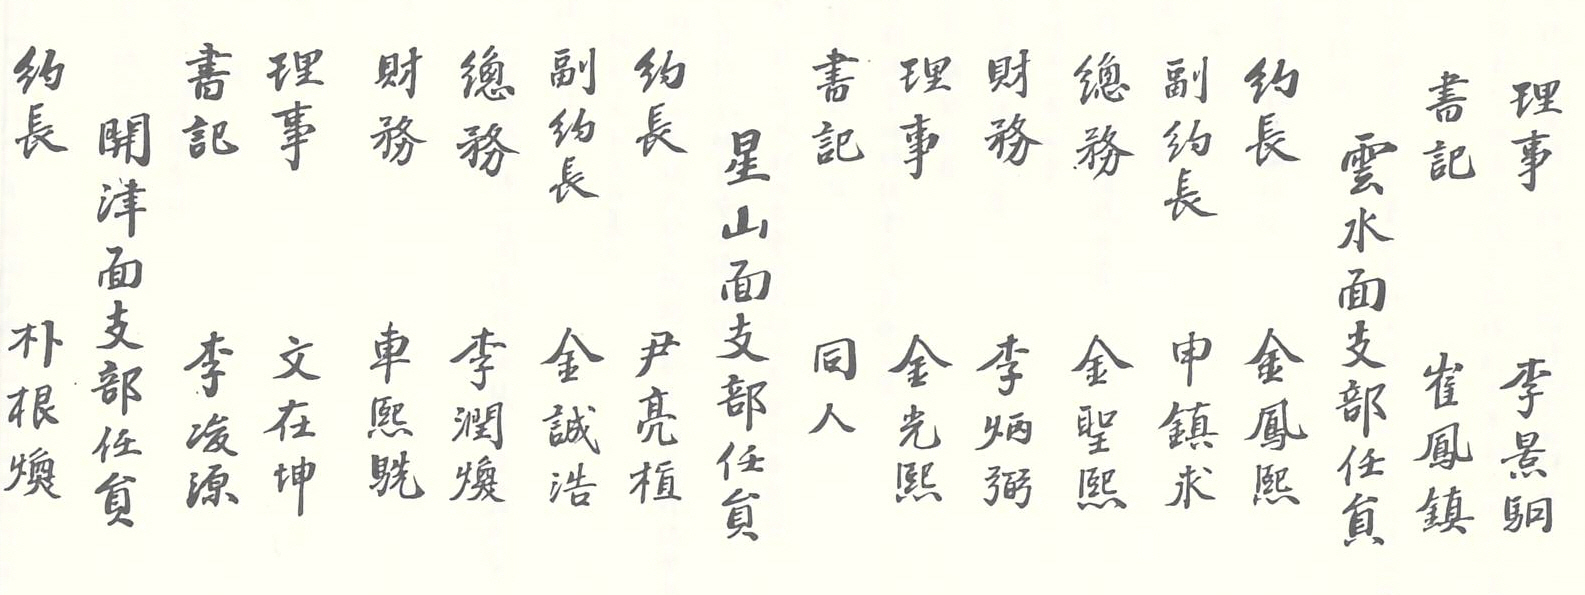 理事 李景駉
書記 崔鳳鎮
雲水面支部任員
約長 金鳳熙
副約長 申鎮求
總務 金聖熙
財務 李炳弼
理事 金光熙
書記 同人
星山面支部任員
約長 尹亮植
副約長 金誠浩
總務 李潤煥
財務 車熙駪
理事 文在坤
書記 李浚源
開津面支部任員
約長 朴根煥